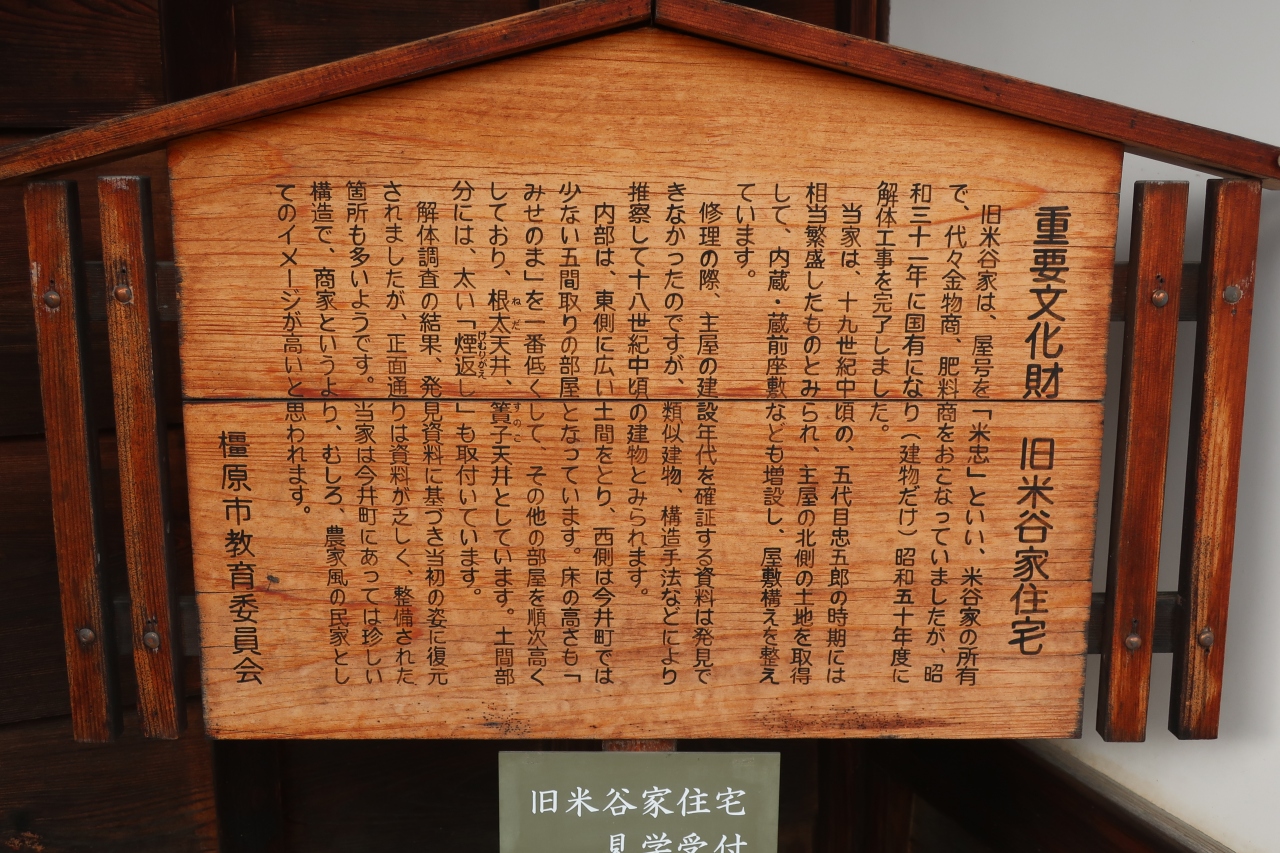 重要文化財　旧米谷家住宅
旧米谷家は、屋号を「米忠」といい、米谷家の所有
で、代々金物商、肥料商をおこなっていましたが、昭
和三十一年に国有になり（建物だけ）昭和五十年度に
解体工事を完了しました。
当家は、十九世紀中頃の、五代目忠五郎の時期には
相当繁盛したものとみられ、主屋の北側の土地を取得
して、内蔵・蔵前座敷なども増設し、屋敷構えを整え
ています。
修理の際、主屋の建設年代を確証する資料は発見で
きなかったのですが、類似建物、構造手法などにより
推察して十八世紀中頃の建物とみられます。
内部は、東側に広い土間をとり、西側は今井町では
少ない五間取りの部屋となっています。床の高さも「
みせのま」を一番低くして、その他の部屋を順次高く
しており、根太天井、簀子天井としています。土間部
ねだ
すのこ
分には、太い「煙返し」も取付いています。
けむりがえ
解体調査の結果、発見資料に基づき当初の姿に復元
されましたが、正面通りは資料が乏しく、整備された
箇所も多いようです。当家は今井町にあっては珍しい
構造で、商家というより、むしろ、農家風の民家とし
てのイメージが高いと思われます。
橿原市教育委員会
旧米谷家住宅
見学受付